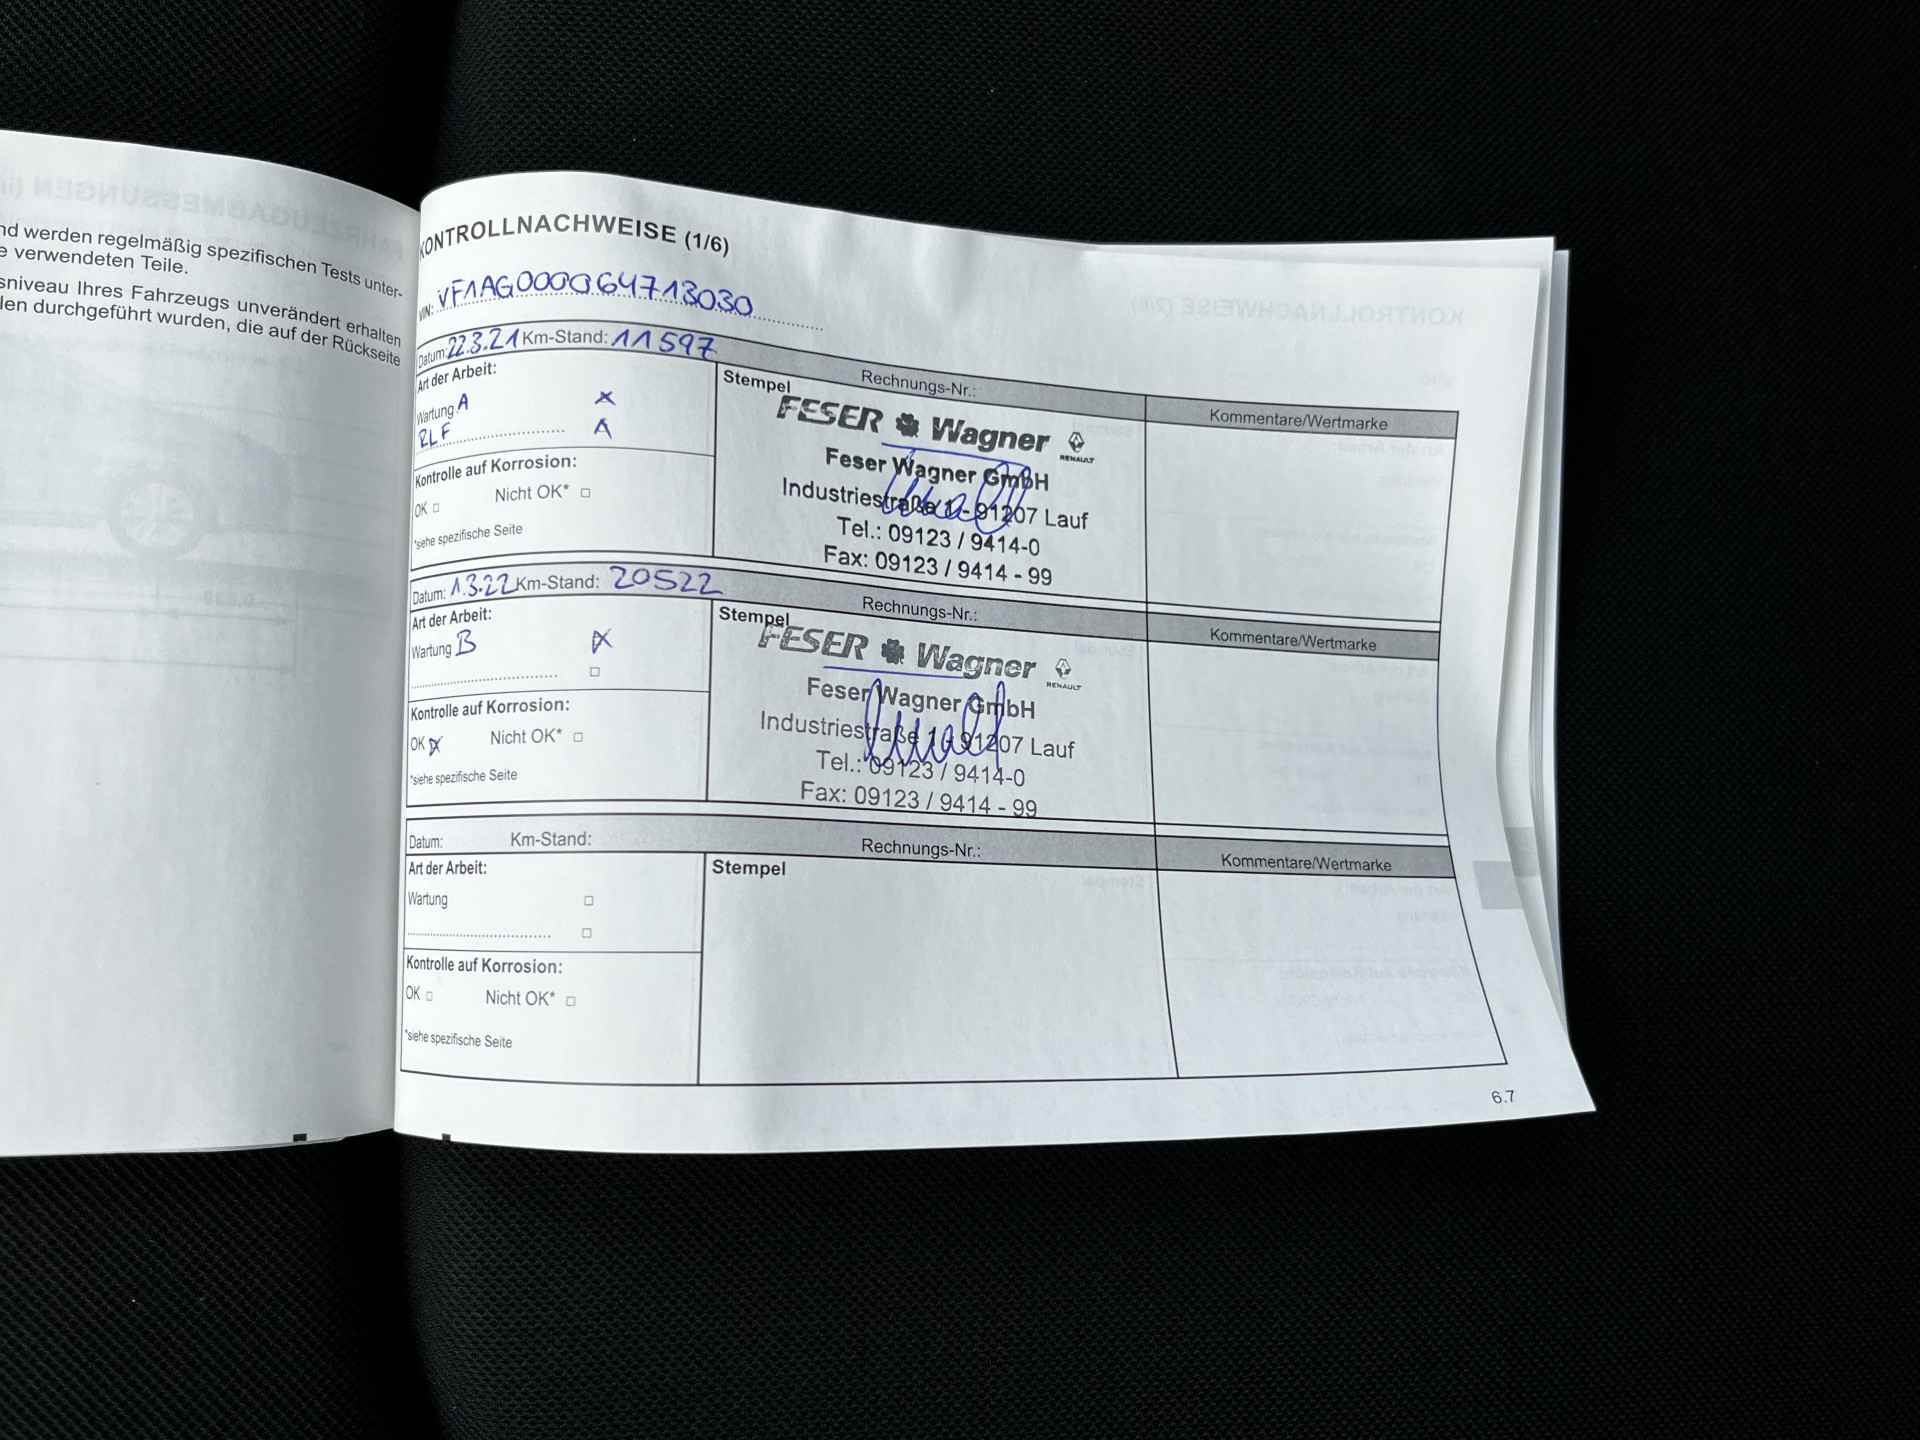 nd werden regelmäßig spezifischen Tests unter-
e verwendeten Teile.
sniveau Ihres Fahrzeugs unverändert erhalten
len durchgeführt wurden, die auf der Rückseite
KONTROLLNACHWEISE (1/6)
VIN: VF1AG000064713030
Datum: 22.3.21 Km-Stand: 11597 Rechnungs-Nr.: Kommentare/Wertmarke
Art der Arbeit:
Wartung A
RLF
Kontrolle auf Korrosion:
OK Nicht OK*
*siehe spezifische Seite
Stempel
FESER Wagner
RENAULT
Feser Wagner GmbH
Industriestraße 1 - 91207 Lauf
Tel.: 09123 / 9414-0
Fax: 09123 / 9414 - 99
Datum: 1.3.22 Km-Stand: 20522 Rechnungs-Nr.: Kommentare/Wertmarke
Art der Arbeit:
Wartung B
Kontrolle auf Korrosion:
OK Nicht OK*
*siehe spezifische Seite
Stempel
FESER Wagner
RENAULT
Feser Wagner GmbH
Industriestraße 1 - 91207 Lauf
Tel.: 09123 / 9414-0
Fax: 09123 / 9414 - 99
Datum: Km-Stand: Rechnungs-Nr.: Kommentare/Wertmarke
Art der Arbeit:
Wartung
Kontrolle auf Korrosion:
OK Nicht OK*
*siehe spezifische Seite
Stempel
6.7